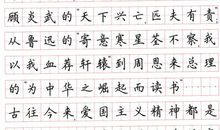 顾炎武的天下兴亡匹夫有责
从鲁迅的寄意寒星荃不察我
以我血荐轩辕到周恩来总理
的为中华之崛起而读书
古往今来爱国主义精神都是